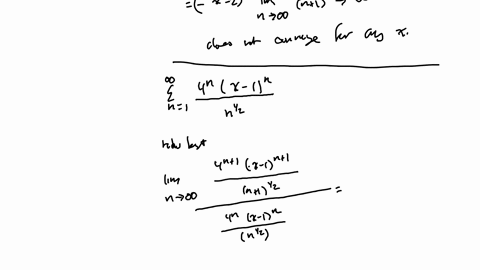 =(-x-2) lim n→∞ (n+1) →
does not converge for any x.
∞ Σ n=1 4^n (x-1)^n / n^{1/2}
ratio test
lim n→∞ (4^{n+1} (x-1)^{n+1} / (n+1)^{1/2}) / (4^n (x-1)^n / (n^{1/2})) =